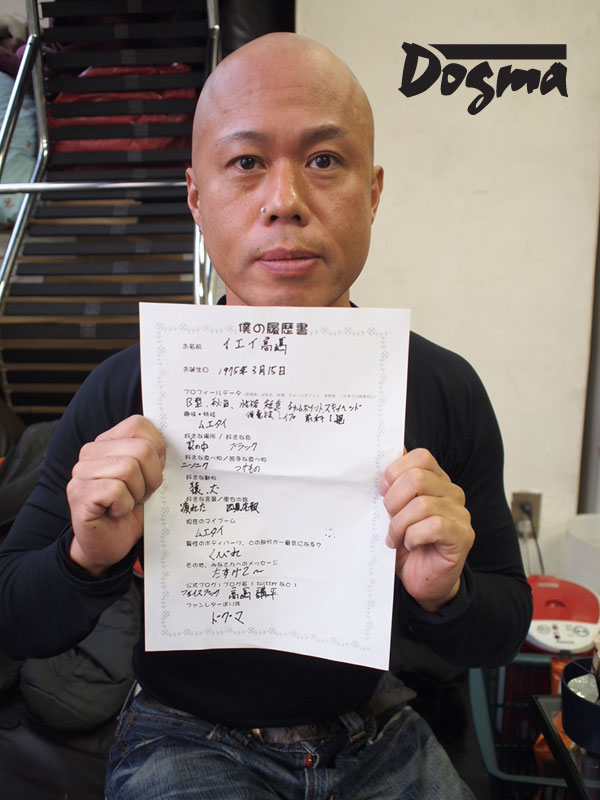 Dogma
僕の履歴書
お名前 イエイ高嶋
お誕生日 1975年3月15日
プロフィールデータ
B型、秋田、
趣味・特技
ムエタイ
好きな場所 / 好きな色
家の中 ブラック
好きな食べ物 / 苦手な食べ物
ニンニク つけもの
好きな動物
猿、犬
好きな言葉 / 座右の銘
疲れた
現在のマイブーム
ムエタイ
女性のボディパーツ、どの部分が一番気になる?
くびれ
その他、みなさんへのメッセージ
たすけて〜
公式ブログ:ブログ名(twitterなど)
フェイスブック 高嶋
ファンレター送り先
ドグマ